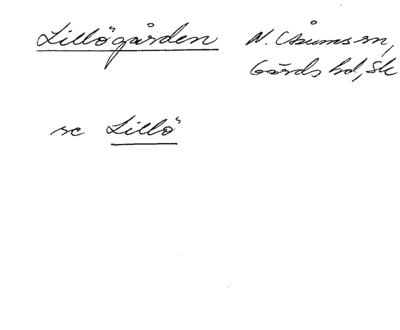 Lillögården N. Åsums sn,
Gärds hd, Sk
se Lillö